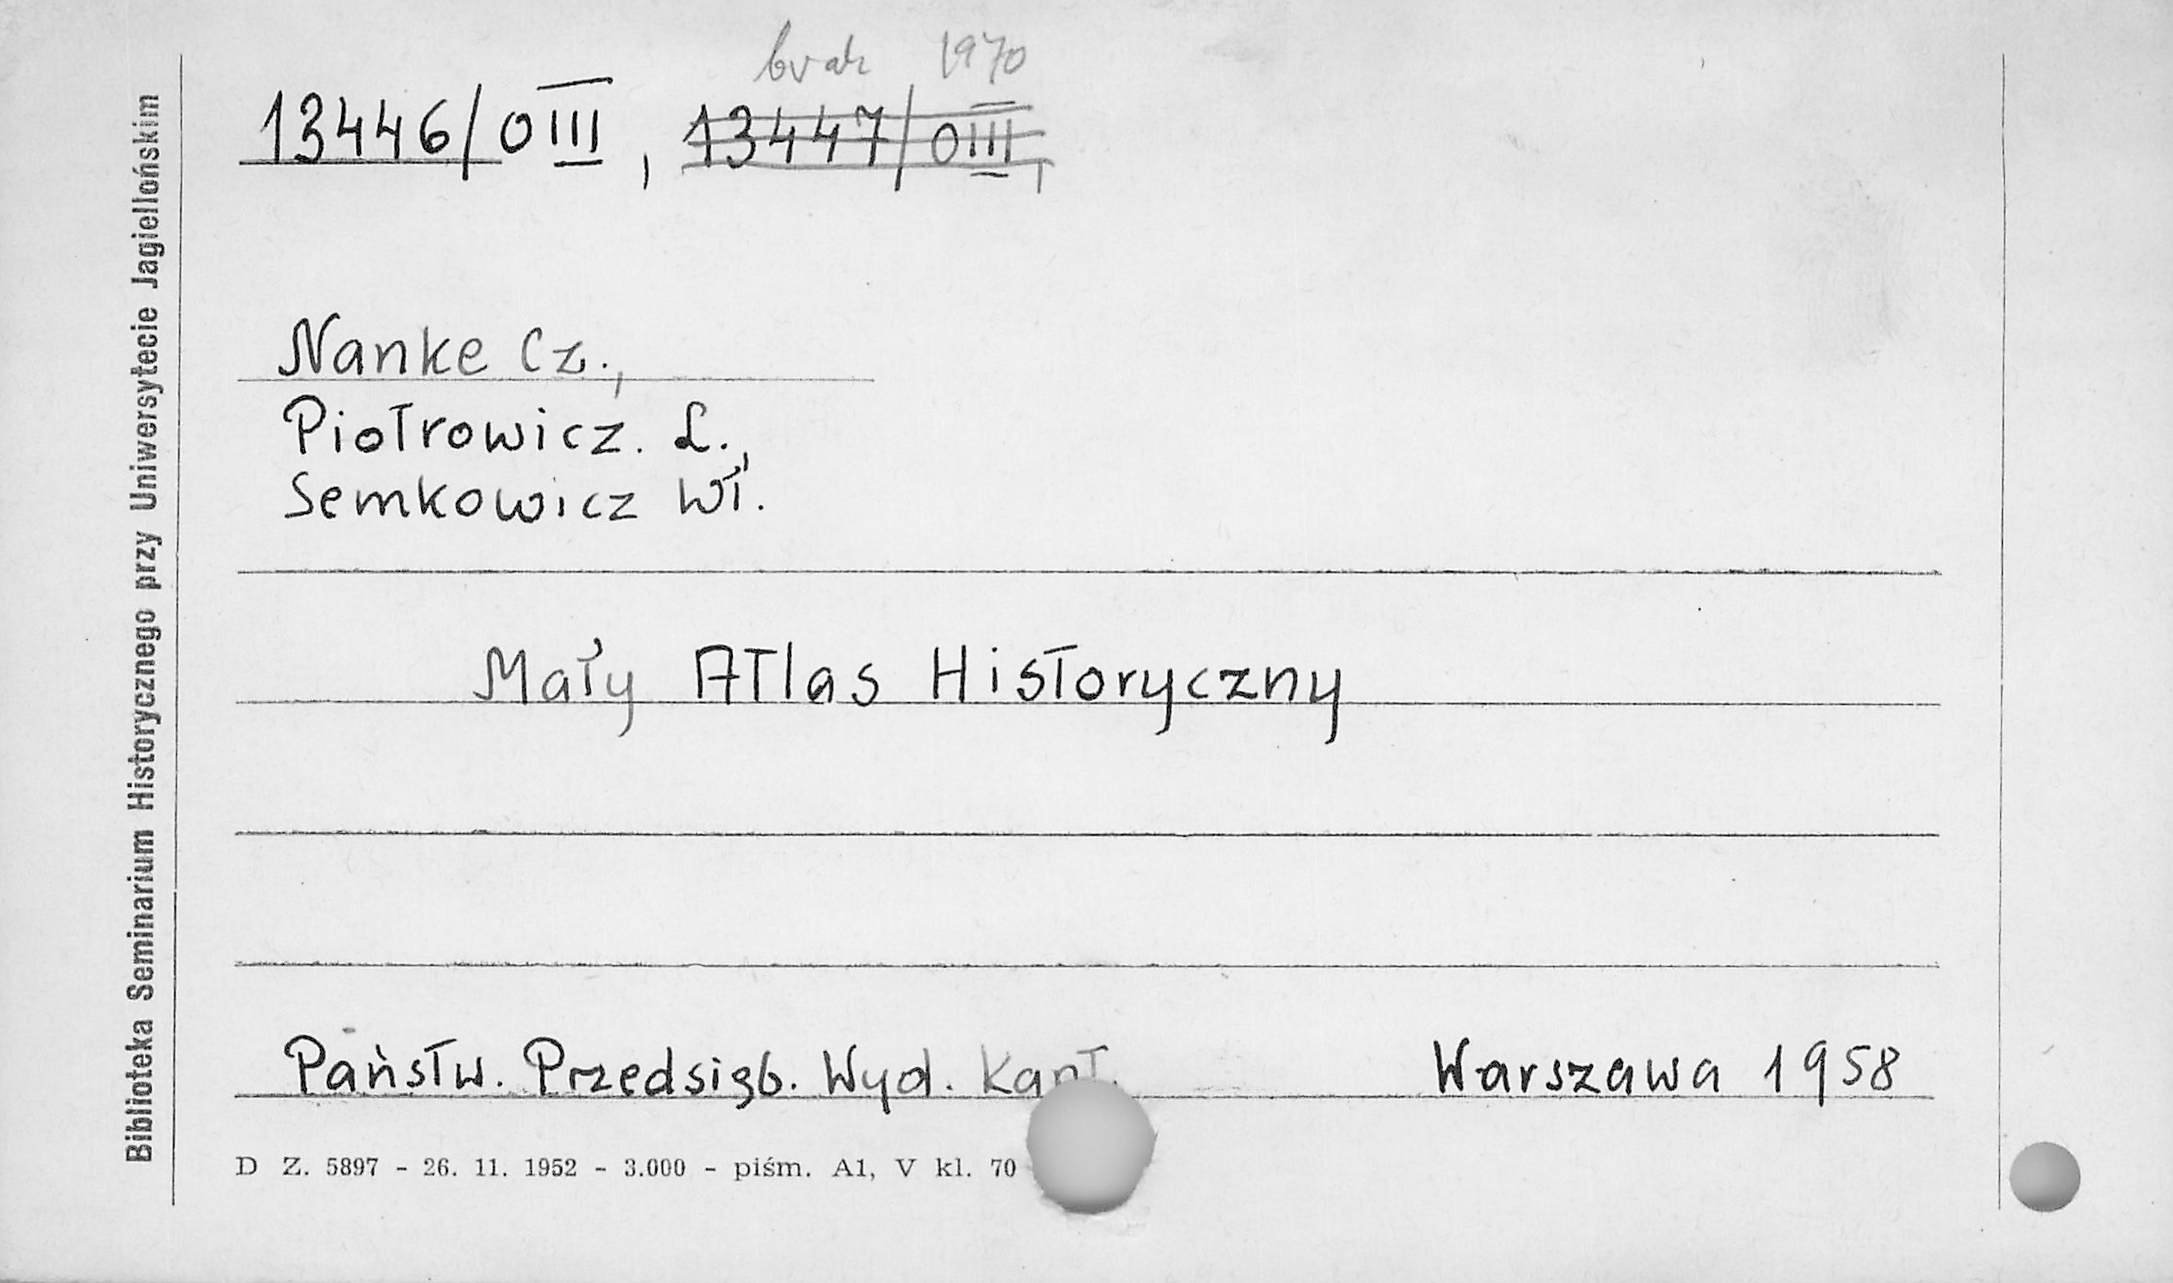 brak 1970
13446/OIII, 13447/OIII,
Nanke Cz.,
Piotrowicz. L.,
Semkowicz Wł.
Mały Atlas Historyczny
Państw. Przedsięb. Wyd. Kart. Warszawa 1958
D Z. 5897 - 26. 11. 1952 - 3.000 - piśm. A1, V kl. 70
Biblioteka Seminarium Historycznego przy Uniwersytecie Jagiellońskim